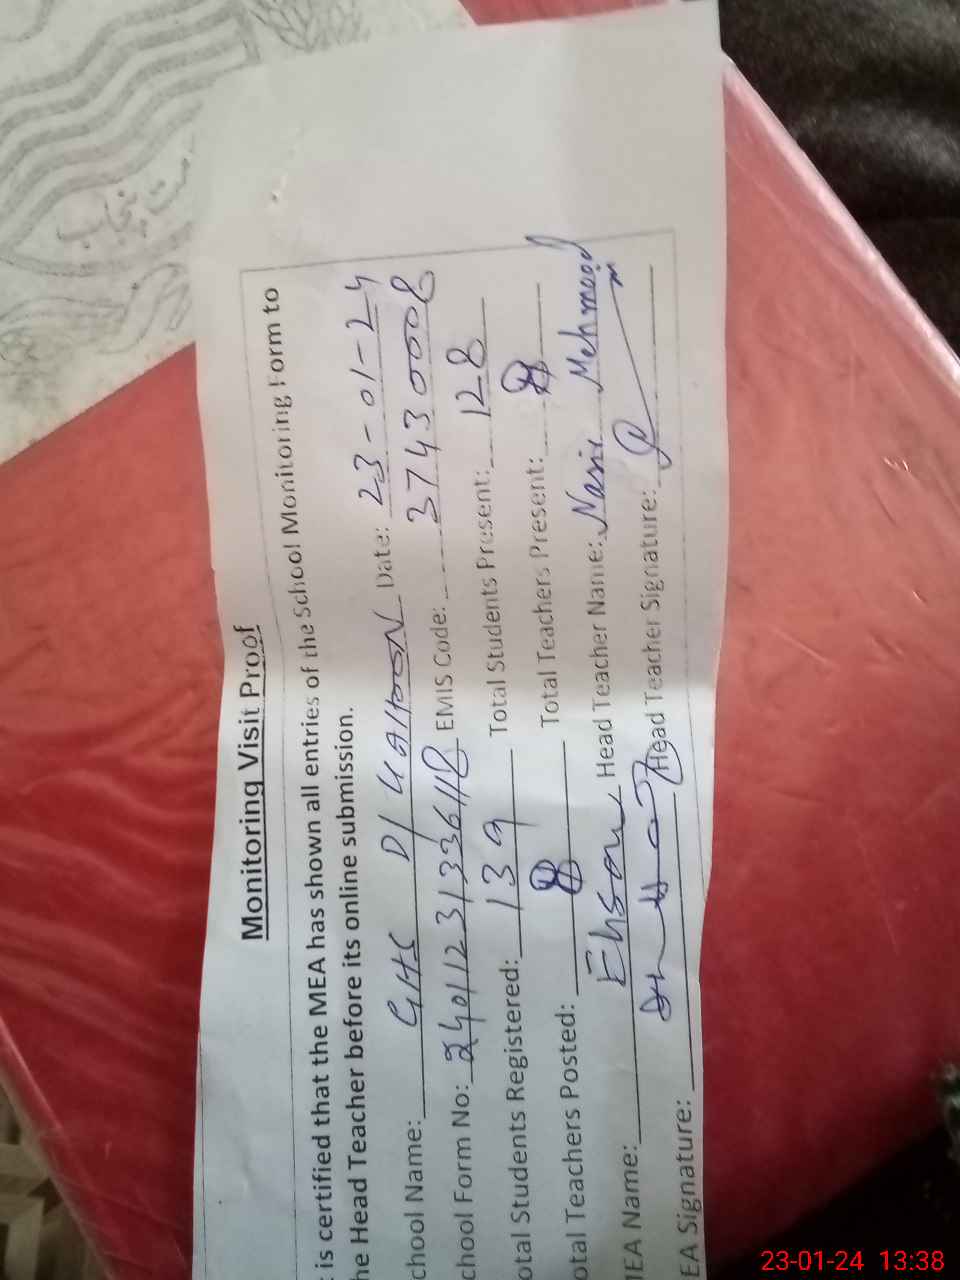 Monitoring Visit Proof
is certified that the MEA has shown all entries of the School Monitoring Form to
he Head Teacher before its online submission.
chool Name: GHS D/ Date: 23-01-24
chool Form No: 24011231336118 EMIS Code: 37430008
otal Students Registered: 139 Total Students Present: 128
otal Teachers Posted: 8 Total Teachers Present: 8
IEA Name: Ehsan Head Teacher Name: Nasir Mehmood
EA Signature: Head Teacher Signature:
پنجاب
23-01-24 13:38